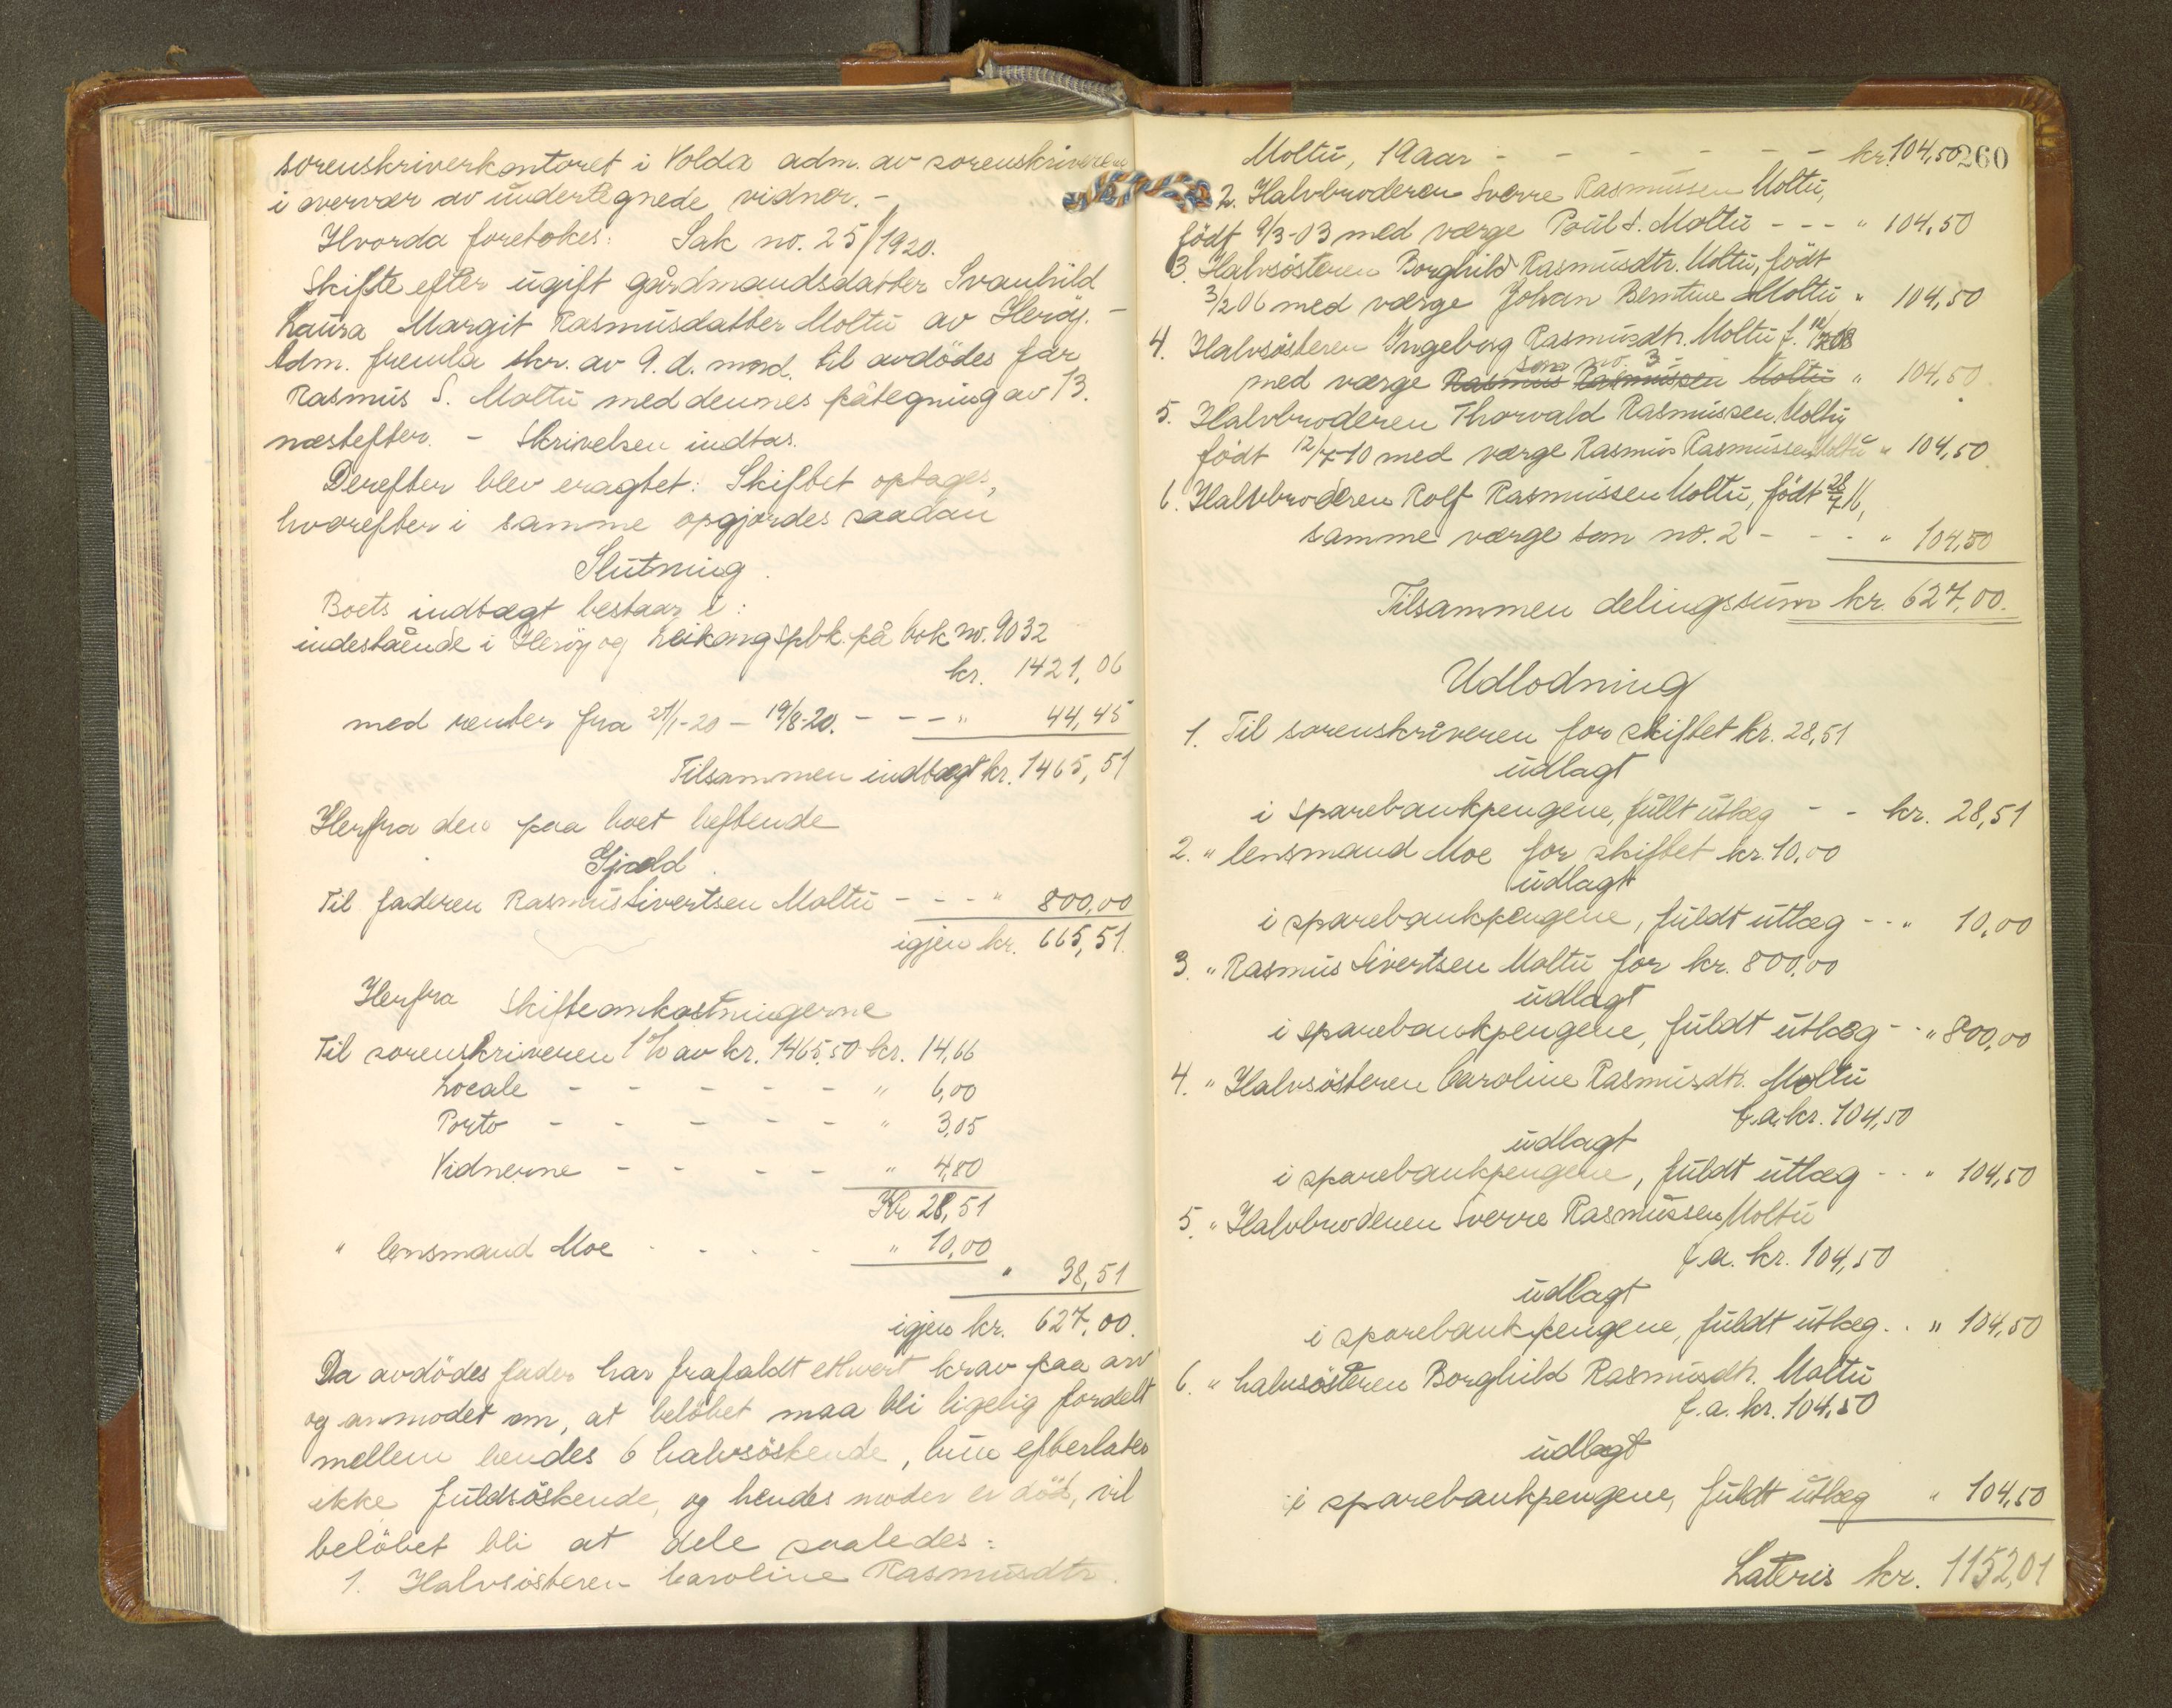 sorenskriverkontoret i Volda adm. av sorenskriveren
i overvær av undertegnede vidner. -
Hvorda foretokes: Sak no. 25/1920.
Skifte efter ugift gårdmandsdatter Svanhild
Laura Margit Rasmusdatter Moltu av Herøy. -
Adm. fremla skr. av 9. d. mnd. til avdödes far
Rasmus S. Moltu med dennes påtegning av 13.
næstefter. - Skrivelsen indtas.
Derefter blev eragtet: Skiftet optages,
hvorefter i samme opgjordes saadan
Slutning.
Boets indtægt bestaar i:
indestående i Herøy og Leikong spbk. på bok no. 9032
kr. 1421,06
med renter fra 21/1-20 - 19/8-20. - - - " 44,45
Tilsammen indtægt kr. 1465,51
Herfra den paa boet heftende
Gjæld.
Til faderen Rasmus Sivertsen Moltu - - - " 800,00
igjen kr. 665,51.
Herfra Skifteomkostningerne
Til sorenskriveren 1% av kr. 1465,50 kr. 14,66
Locale - - - - - " 6,00
Porto - - - - - " 3,05
Vidnerne - - - - " 4,80
Kr. 28,51
" lensmand Moe - - - - " 10,00
" 38,51
igjen kr. 627,00.
Da avdödes fader har frafaldt ethvert krav paa arv
og anmodet om, at belöbet maa bli ligelig fordelt
mellem hendes 6 halvsöskende, hun efterlater
ikke fuldsöskende, og hendes moder er död, vil
belöbet bli at dele saaledes:
1. Halvsösteren Caroline Rasmusdtr.
260
Moltu, 19 aar - - - - - - kr. 104,50
2. Halvbroderen Sverre Rasmussen Moltu,
födt 9/3-03 med værge Paul S. Moltu - - - " 104,50
3. Halvsösteren Borghild Rasmusdtr. Moltu, födt
3/2 06 med værge Johan Berntine Moltu " 104,50
4. Halvsösteren Ingeborg Rasmusdtr. Moltu f.
som no. 3
med værge Rasmus Rasmussen Moltu " 104,50
5. Halvbroderen Thorvald Rasmussen Moltu
födt 12/7-10 med værge Rasmus Rasmussen Moltu " 104,50
6. Halvbroderen Rolf Rasmussen Moltu, födt 28/7 16,
samme værge som no. 2 - - - " 104,50
Tilsammen delingssum kr. 627,00.
Udlodning
1. Til sorenskriveren for skiftet kr. 28,51
udlagt
i sparebankpengene, fullt utlæg - - kr. 28,51
2. " lensmand Moe for skiftet kr. 10,00
udlagt
i sparebankpengene, fuldt utlæg - - " 10,00
3. " Rasmus Sivertsen Moltu for kr. 800,00
udlagt
i sparebankpengene, fuldt utlæg - - " 800,00
4. " Halvsösteren Caroline Rasmusdtr. Moltu
f.a. kr. 104,50
udlagt
i sparebankpengene, fuldt utlæg - - " 104,50
5. " Halvbroderen Sverre Rasmussen Moltu
f.a. kr. 104,50
udlagt
i sparebankpengene, fuldt utlæg - - " 104,50
6. " halvsösteren Borghild Rasmusdtr. Moltu
f.a. kr. 104,50
udlagt
i sparebankpengene, fuldt utlæg " 104,50
Lateris kr. 1152,01